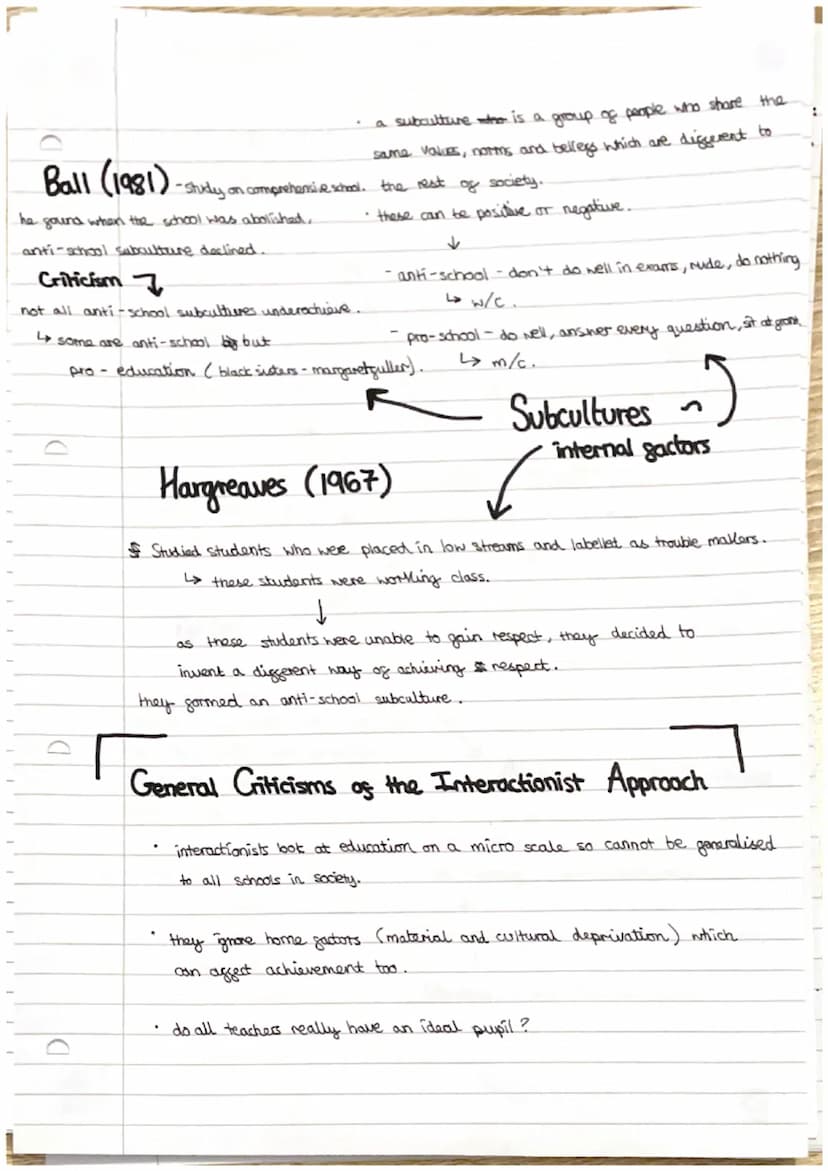 · a subculture is a group of people who share the
same values, norms and beliefs which are different to
the rest of society.
· these can be positive or negative.
↓
- anti-school - don't do well in exams, rude, do nothing
↳ w/c.
- pro-school - do well, answer every question, sit at front.
↳ m/c.
Ball (1981) - study on comprehensive school.
he found when the school was abolished,
anti-school subculture declined.
Criticism
not all anti-school subcultures underachieve.
↳ some are anti-school but
pro-education (black sisters - margaret fuller).
Subcultures
internal factors
Hargreaves (1967)
Studied students who were placed in low streams and labellet as trouble makers.
↳ these students were working class.
↓
as these students were unable to gain respect, they decided to
invent a different way of achieving respect.
they formed an anti-school subculture.
General Criticisms of the Interactionist Approach
· interactionists look at education on a micro scale so cannot be generalised
to all schools in society.
· they ignore home factors (material and cultural deprivation) which
can affect achievement too.
· do all teachers really have an ideal pupil?